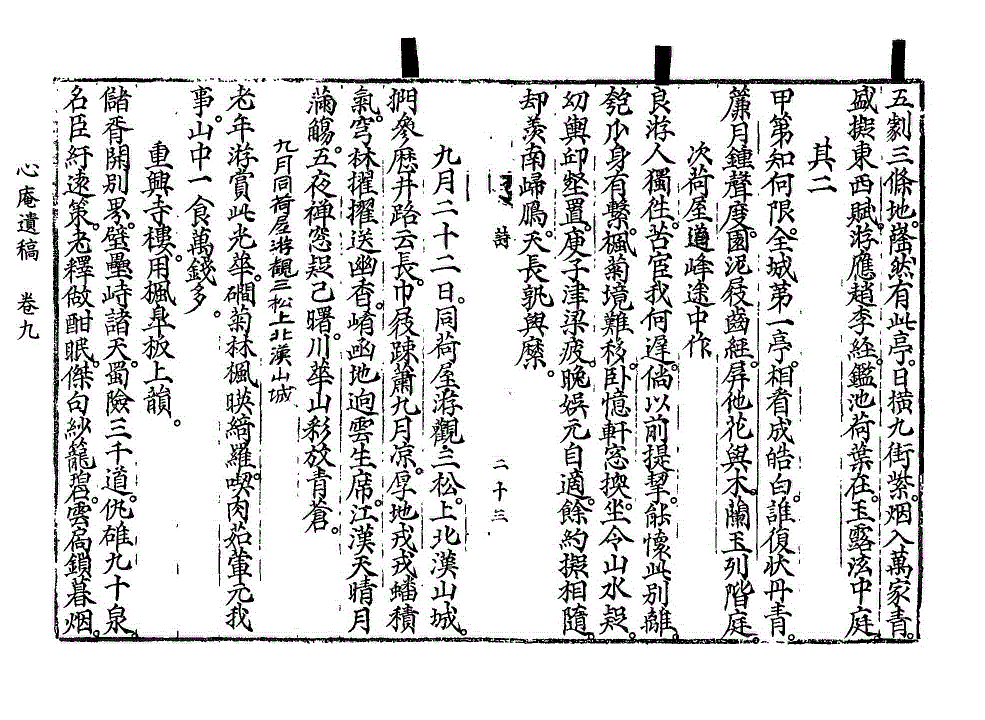 五劇三條地。嵤然有此亭。日橫九街紫。烟入萬家青。
盛擬東西賦。游應趙李經。鑑池荷葉在。玉露泫中庭。
其二
甲第知何限。全城第一亭。相看成皓白。誰復狀丹青。
簾月鍾聲度。園泥屐齒經。屛他花與木。蘭玉列階庭。
次荷屋道峰途中作
良游人獨徃。苦宦我何遲。倘以前提挈。能懷此別離。
匏瓜身有繫。楓菊境難移。臥憶軒窓換。坐令山水疑。
幼輿邱壑置。庾子津梁疲。晩娛元自適。餘約擬相隨。
却羡南歸鴈。天長孰與縻。
詩
二十三
九月二十二日。同荷屋游觀三松。上北漢山城。
捫參歷井路云長。巾屐踈蕭九月凉。厚地戎戎蟠積
氣。穹林擢擢送幽香。崤函地逈雲生席。江漢天晴月
滿觴。五夜禅窓起已曙。川華山彩放青蒼。
九月同荷屋游觀三松上北漢山城
老年游賞此光华。磵菊林楓暎綺羅。喫肉茹葷元我
事。山中一食萬錢多。
重興寺樓。用楓皐板上韻。
儲胥開別界。壁壘峙諸天。蜀險三千道。仇雄九十泉。
名臣紆遠策。老釋做酣眠。傑句紗籠碧。雲扃鎖暮烟。
心庵遺稿 卷九